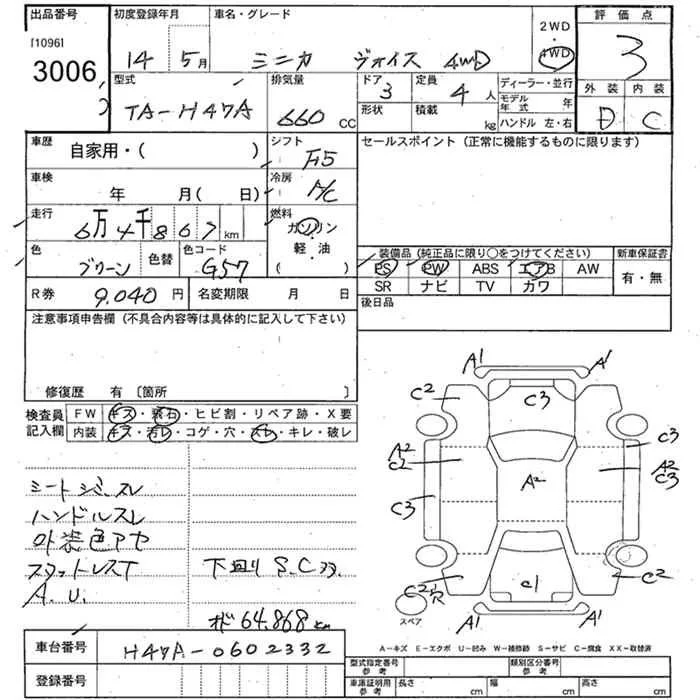 出品番号
[1096]
3006
初度登録年月
14年 5月
車名・グレード
ミニカ ヴォイス 4WD
2WD
・
4WD
評価点
3
外装 内装
D C
型式
TA-H47A
排気量
660 CC
ドア
3
定員
4人
形状
積載
kg
ディーラー・並行
モデル年式 年
ハンドル 左・右
車歴
自家用・( )
シフト
F5
セールスポイント (正常に機能するものに限ります)
車検
年 月( 日)
冷房
A/C
走行
6万4千867km
燃料
ガソリン
軽・油
( )
色
グリーン
色替
色コード
G57
装備品 (純正品に限り○をつけてください)
PS PW ABS エアB AW
SR ナビ TV カワ
新車保証書
有・無
R券 9.040円
名変期限 月 日
後日品
注意事項申告欄 (不具合内容等は具体的に記入して下さい)
修復歴 有 [箇所 ]
検査員記入欄
FW キズ・飛石・ヒビ割・リペア跡・X要
内装 キズ・汚レ・コゲ・穴・スレ・キレ・破レ
シートジミ、スレ
ハンドルスレ
外装色アセ
スタットレスT
A.U.
下回り S.C
オド64.868km
A1 A1
C2 C3 C2
C3
A2
C2
A2
A2
C3
C3
C2 C1 C2
A1 A1
スペア
A-キズ E-エクボ U-凹み W-補修跡 S-サビ C-腐食 XX-取替済
車台番号 H47A-0602332
登録番号
型式指定番号
参考
類別区分番号
参考
車庫証明用
参考
長さ cm
幅 cm
高さ cm